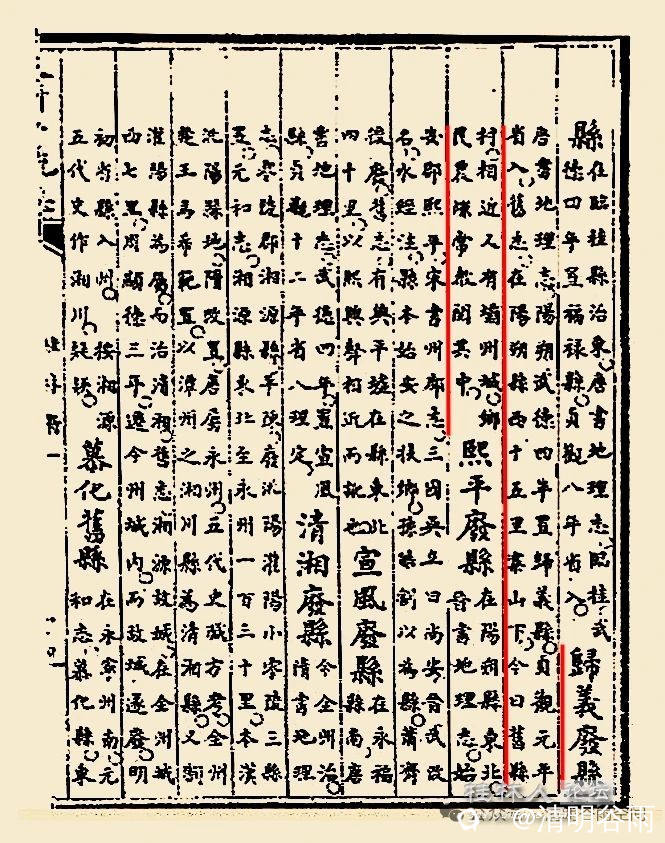 縣
在臨桂縣治東唐書地理志臨桂武
德四年置福祿縣貞觀八年省入
歸義廢縣
唐書地理志陽朔武德四年置歸義縣貞觀元年
省入舊志在陽朔縣西十五里寨山下今曰舊縣
村相近又有蘭州城鄉
民農隙常教閱其中
熙平廢縣
在陽朔縣東北
晉書地理志始
安郡熙平宋書州郡志三國吳立曰尚安晉武改
名水經注縣本始安之扶鄉孫皓割以為縣蕭齊
後廢舊志有興平墟在縣東北
四十里以熙興聲相近而訛也
宣風廢縣
在永福
縣南唐
書地理志武德四年置宣風
縣貞觀十二年省入理定
清湘廢縣
今全州治
隋書地理
志零陵郡湘源縣平陳廢洮陽灌陽小零陵三縣
置元和志湘源縣東北至永州一百三十里本漢
洮陽縣地隋改置唐屬永州五代史職方考全州
楚王馬希範置以潭州之湘川縣為清湘縣又割
灌陽縣為屬而治清湘舊志湘源故城在全州城
西七里周顯德三年遷今州城内而故城遂廢明
初省縣入州按湘源
五代史作湘川疑誤
慕化舊縣
在永寧州南元
和志慕化縣東
桂林人论坛
@清明谷雨